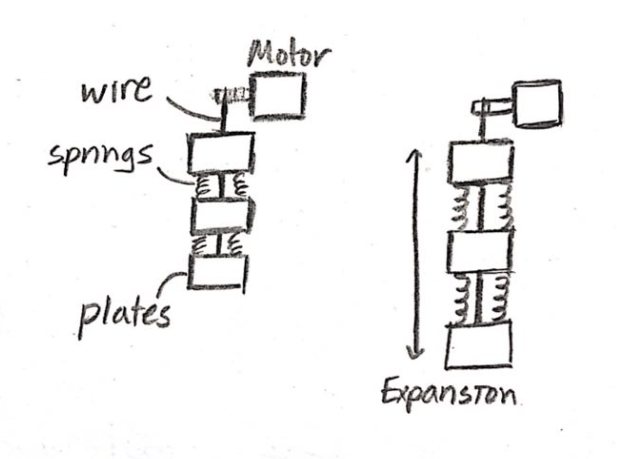 Motor
wire
springs
plates
Expansion